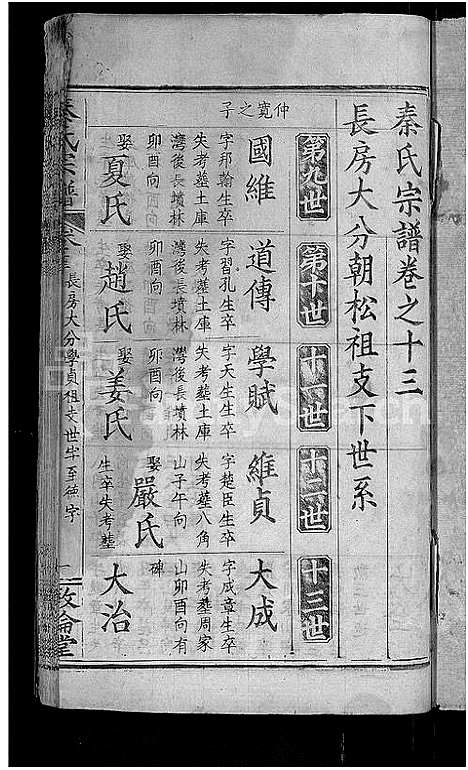 秦氏宗譜卷之十三
長房大分朝松祖支下世系
第九世
第十世
十一世
十二世
十三世
仲寬之子
國維
字邦翰生卒
失考塟土庫
灣後長墳林
卯酉向
娶
夏氏
道傳
字習孔生卒
失考塟土庫
灣後長墳林
卯酉向
娶
趙氏
學賦
字天生生卒
失考塟土庫
灣後長墳林
卯酉向
娶
姜氏
維貞
字楚臣生卒
失考塟八角
山子午向
娶
嚴氏
生卒失考塟
大成
字成章生卒
失考塟周家
山卯酉向有
碑
大治
秦氏宗譜
長房大分學貞祖支世字至德字
敦倫堂